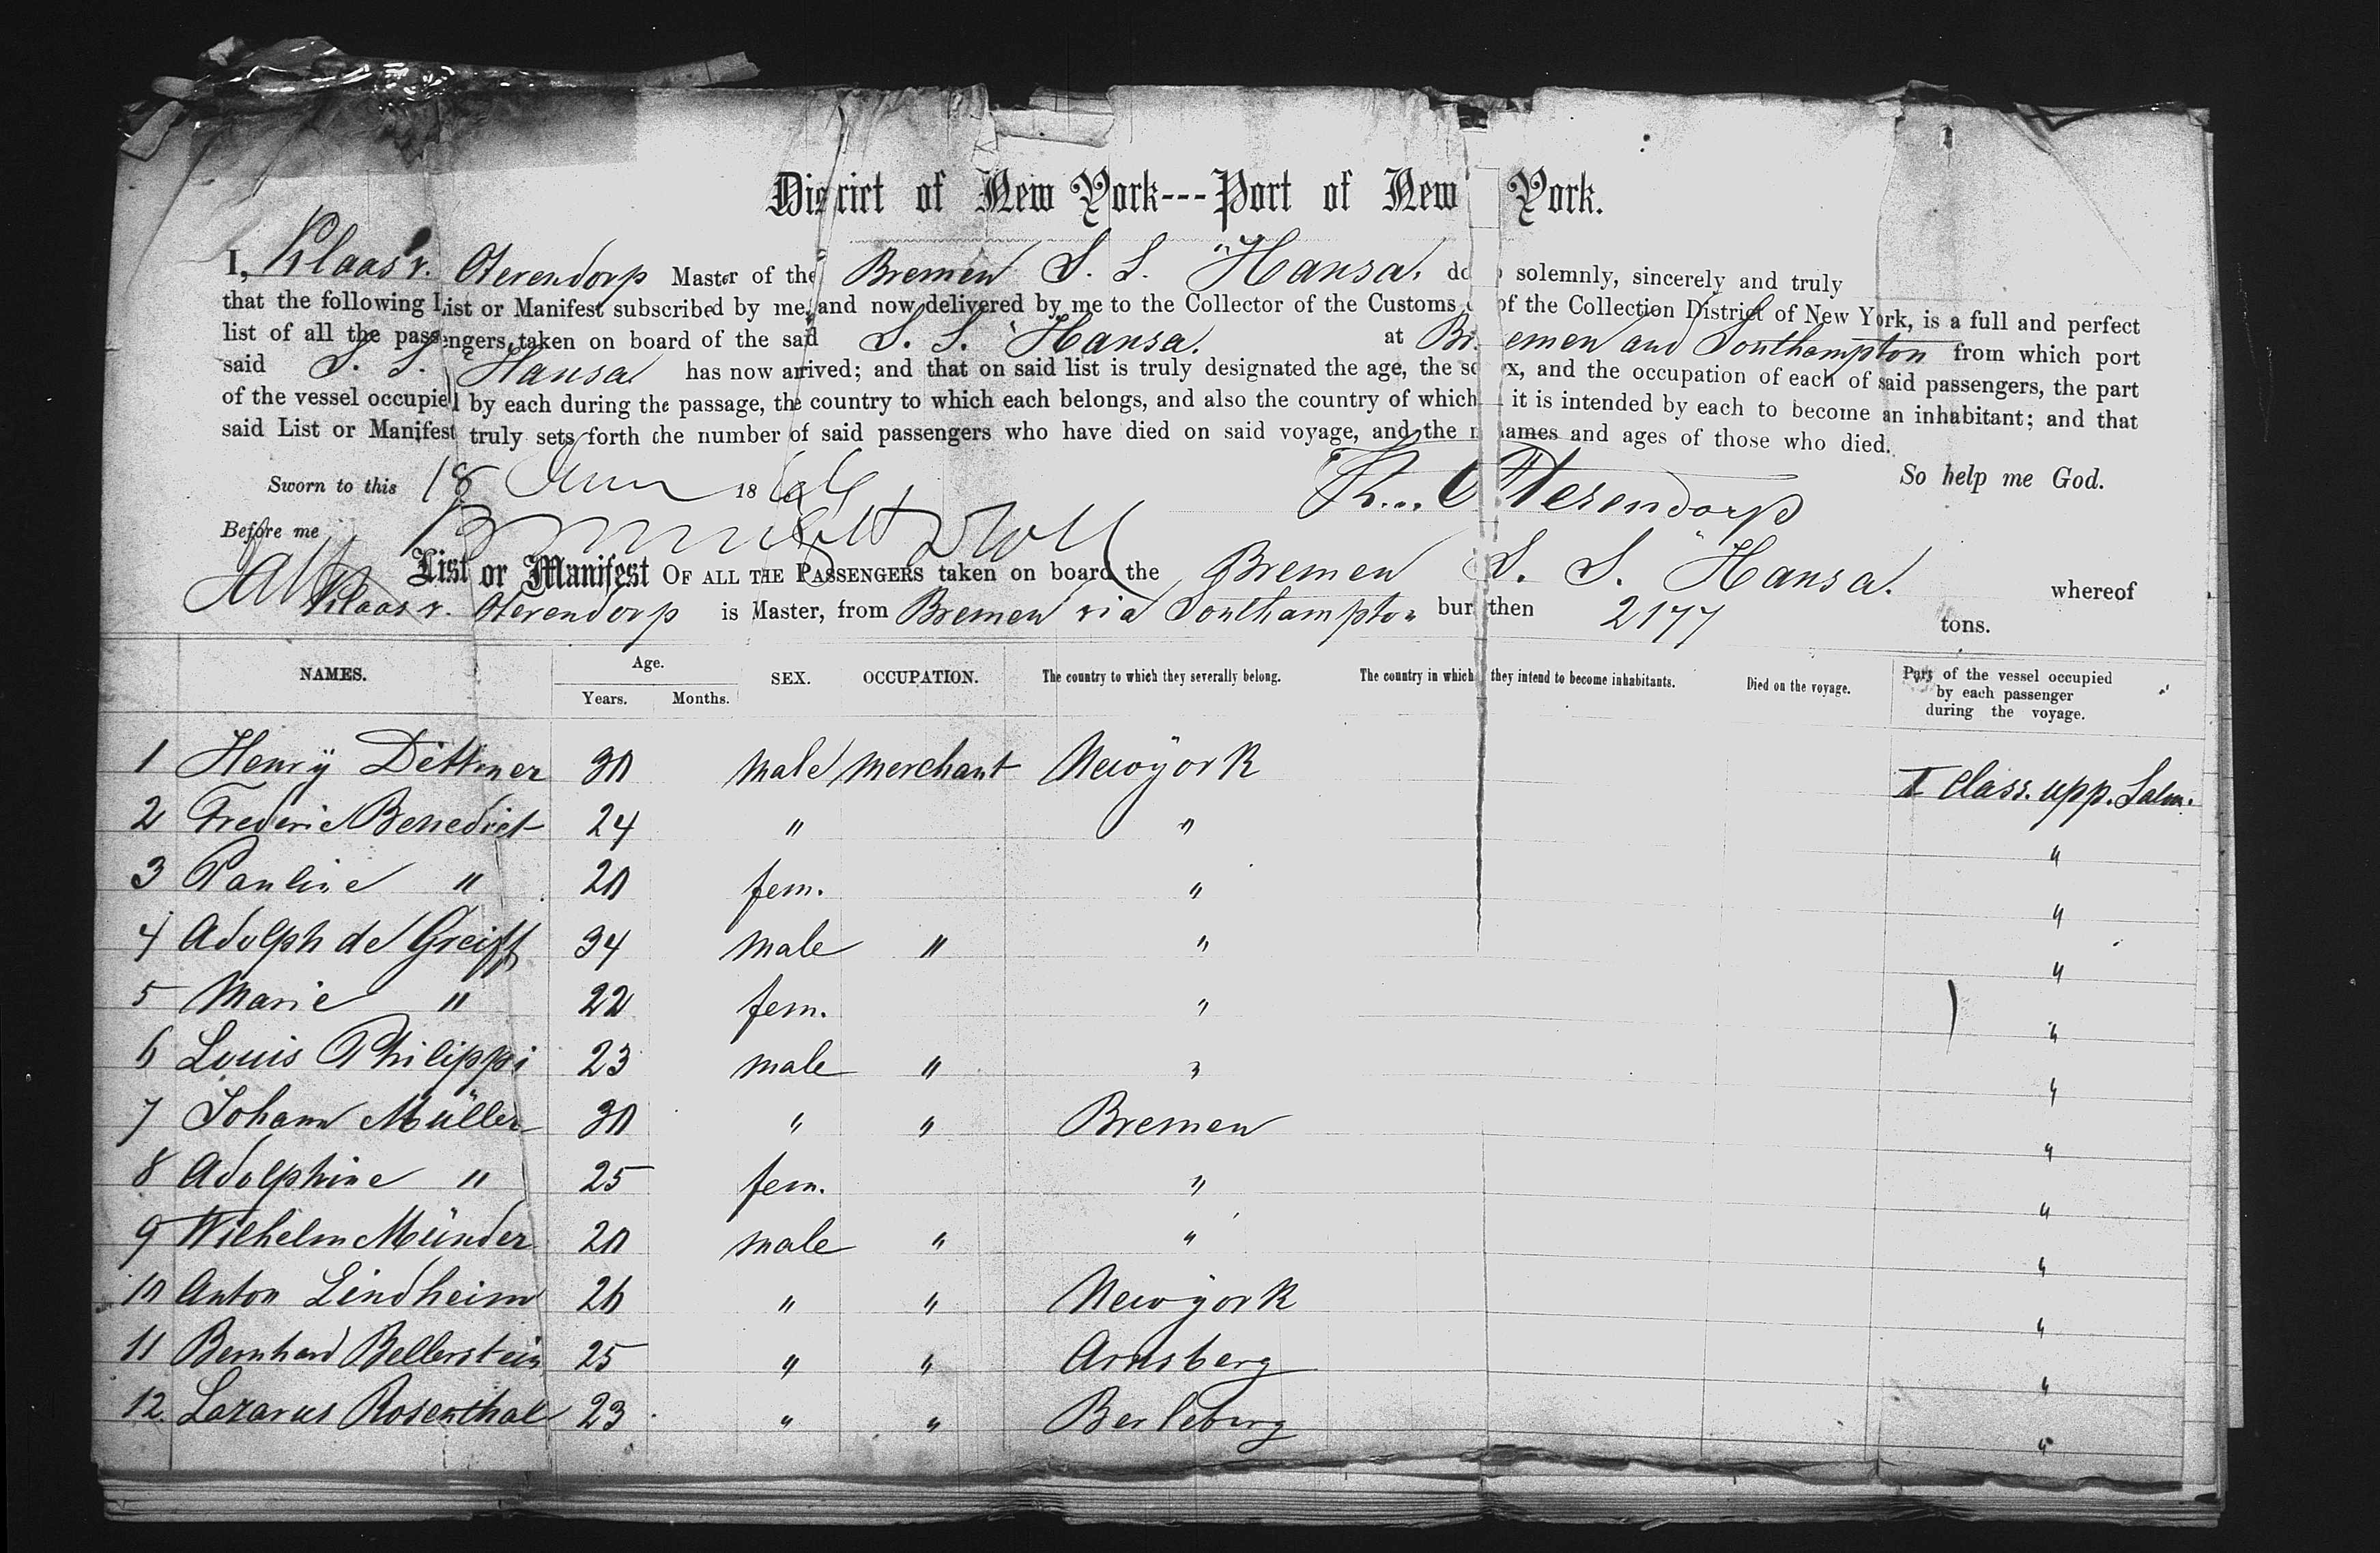 District of New York---Port of New York.
I, Klaas v. Oterendorp Master of the Bremen S. S. "Hansa. do solemnly, sincerely and truly
that the following List or Manifest subscribed by me, and now delivered by me to the Collector of the Customs of the Collection District of New York, is a full and perfect
list of all the passengers, taken on board of the said S. S. "Hansa. at Bremen and Southampton from which port
said S. S. Hansa has now arrived; and that on said list is truly designated the age, the sex, and the occupation of each of said passengers, the part
of the vessel occupied by each during the passage, the country to which each belongs, and also the country of which it is intended by each to become an inhabitant; and that
said List or Manifest truly sets forth the number of said passengers who have died on said voyage, and the names and ages of those who died.
So help me God.
Sworn to this 18 June 1864 K... Oterendorp
Before me
List or Manifest OF ALL THE PASSENGERS taken on board the Bremen S. S. "Hansa. whereof
Klaas v. Oterendorp is Master, from Bremen via Southampton burthen 2177 tons.
NAMES. Age. Years. Months. SEX. OCCUPATION. The country to which they severally belong. The country in which they intend to become inhabitants. Died on the voyage. Part of the vessel occupied by each passenger during the voyage.
1 Henrÿ Dittmer 30 male merchant Newÿork I class. upp. Saln.
2 Frederic Benedict 24 " " "
3 Pauline " 20 fem. " "
4 Adolph de Greiff 34 male " " "
5 Marie " 22 fem. " "
6 Louis Philippi 23 male " " "
7 Johann Müller 30 " " Bremen "
8 Adolphine " 25 fem. " "
9 Wilhelm Münder 20 male " " "
10 Anton Lindheim 26 " " Newÿork "
11 Bernhard Bellerstein 25 " " Arnsberg "
12. Lazarus Rosenthal 23 " " Berleburg "